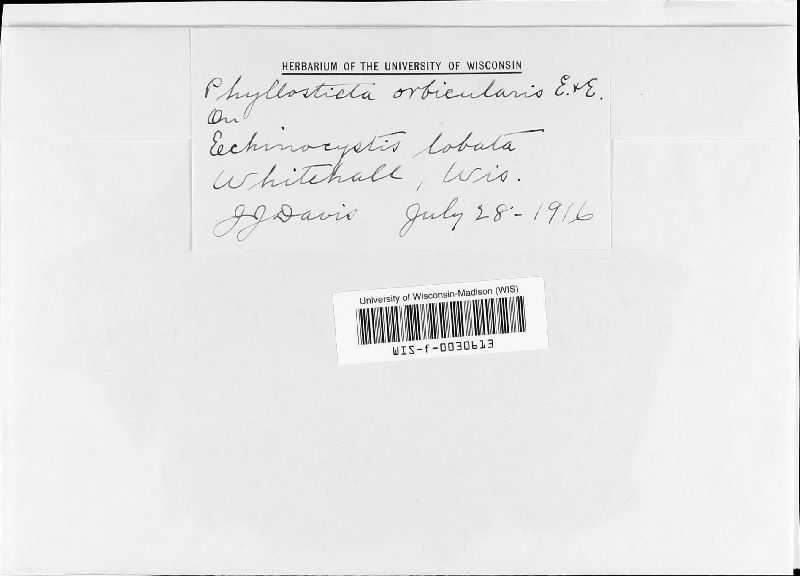 HERBARIUM OF THE UNIVERSITY OF WISCONSIN
Phyllosticta orbicularis E.&E.
On
Echinocystis lobata
Whitehall, Wis.
JJDavis July 28-1916
University of Wisconsin-Madison (WIS)
WIS-f-0030613